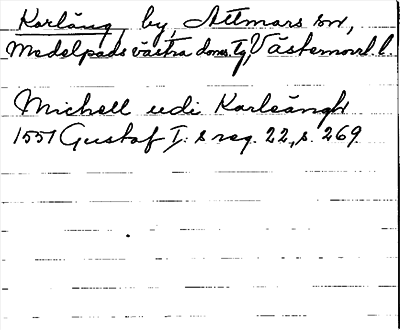 Karläng, by, Attmars sn,
Medelpads västra doms. Tg, Västernorrl. l.
Michell udi Karleängh
1551 Gustaf I:s reg. 22, s. 269.